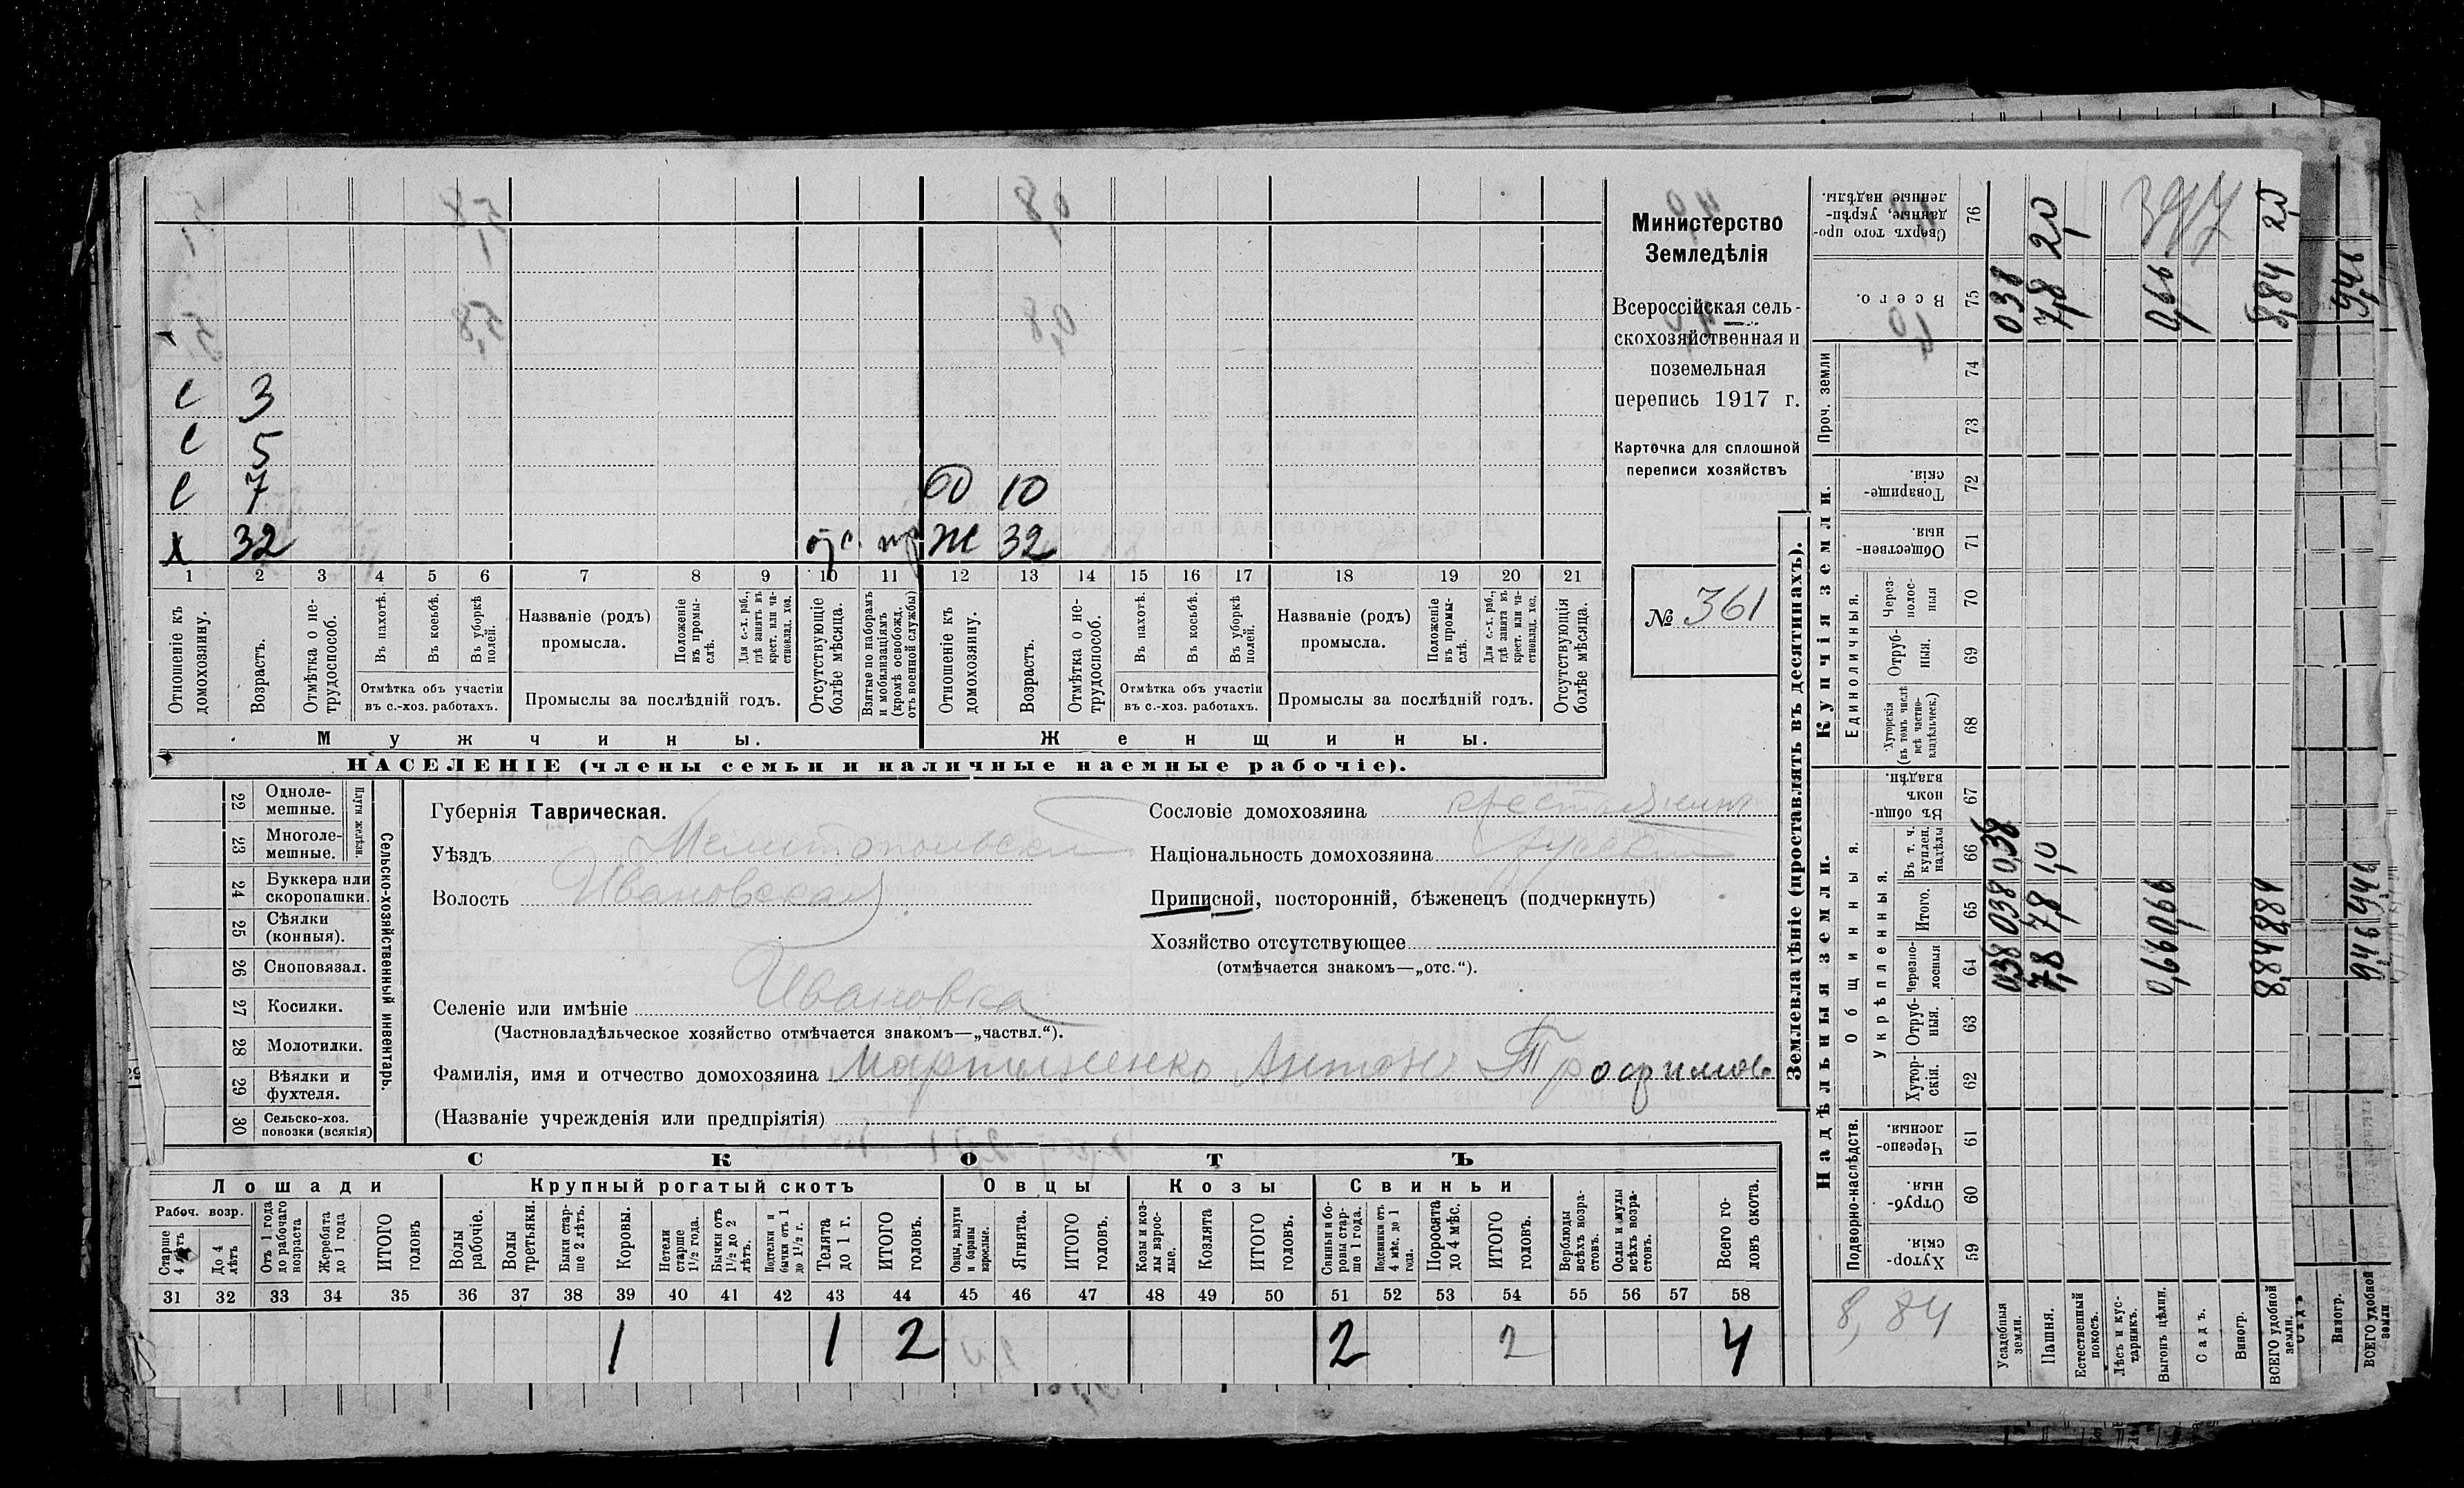 Министерство
Земледѣлія
Всероссійская сель-
скохозяйственная и
поземельная
перепись 1917 г.
Карточка для сплошной
переписи хозяйствъ
№ 361
с 3
с 5
с 7 10
х 32 Ж 32
1 2 3 4 5 6 7 8 9 10 11 12 13 14 15 16 17 18 19 20 21
Отношеніе къ домохозяину.
Возрастъ.
Отмѣтка о не-трудоспособ.
Въ пахотѣ.
Въ косьбѣ.
Въ уборкѣ полей.
Отмѣтка объ участіи
въ с.-хоз. работахъ.
Названіе (родъ)
промысла.
Положеніе въ промы-слѣ.
Для с.-х. раб., гдѣ занятъ въ крест. или ча-стновлад. хоз.
Промыслы за послѣдній годъ.
Отсутствующіе болѣе мѣсяца.
Взятые по наборамъ и мобилизаціямъ (кромѣ освобожд. отъ военной службы)
Отношеніе къ домохозяину.
Возрастъ.
Отмѣтка о не-трудоспособ.
Въ пахотѣ.
Въ косьбѣ.
Въ уборкѣ полей.
Отмѣтка объ участіи
въ с.-хоз. работахъ.
Названіе (родъ)
промысла.
Положеніе въ промы-слѣ.
Для с.-х. раб., гдѣ занята въ крест. или ча-стновлад. хоз.
Промыслы за послѣдній годъ.
Отсутствующія болѣе мѣсяца.
Мужчины. Женщины.
НАСЕЛЕНІЕ (члены семьи и наличные наемные рабочіе).
Сельско-хозяйственный инвентарь.
Плуги желѣзн.
22 Однолемешные.
23 Многолемешные.
24 Буккера или скоропашки.
25 Сѣялки (конныя).
26 Сноповязал.
27 Косилки.
28 Молотилки.
29 Вѣялки и фухтеля.
30 Сельско-хоз. повозки (всякія)
Губернія Таврическая.
Уѣздъ Мелитопольскій
Волость Ивановская
Селеніе или имѣніе Ивановка
(Частновладѣльческое хозяйство отмѣчается знакомъ—„частвл.“).
Фамилія, имя и отчество домохозяина Мартыненко Антон Трофимов
(Названіе учрежденія или предпріятія)
Сословіе домохозяина крестьянин
Національность домохозяина Русскій
Приписной, посторонній, бѣженецъ (подчеркнуть)
Хозяйство отсутствующее
(отмѣчается знакомъ—„отс.“).
СКОТЪ
Лошади Крупный рогатый скотъ Овцы Козы Свиньи
Рабоч. возр.
Старше 4 лѣтъ
До 4 лѣтъ
Отъ 1 года до рабочаго возраста
Жеребята до 1 года
ИТОГО головъ
Волы рабочіе.
Волы третьяки.
Быки стар-ше 2 лѣтъ.
Коровы.
Нетели старше 1½ года.
Бычки отъ 1½ до 2 лѣтъ.
Подтелки и бычки отъ 1 до 1½ г.
Телята до 1 г.
ИТОГО головъ.
Овцы, валухи и бараны взрослые.
Ягнята.
ИТОГО головъ.
Козы и коз-лы взрос-лые.
Козлята
ИТОГО головъ.
Свиньи и бо-ровы стар-ше 1 года.
Подсвинки отъ 4 мѣс. до 1 года.
Поросята до 4 мѣс.
ИТОГО головъ.
Верблюды всѣхъ возра-стовъ.
Ослы и мулы всѣхъ возра-стовъ.
Всего го-ловъ скота.
31 32 33 34 35 36 37 38 39 40 41 42 43 44 45 46 47 48 49 50 51 52 53 54 55 56 57 58
1 1 2 2 2 4
Землевладѣніе (проставлять въ десятинахъ).
Надѣльныя земли. Купчія земли. Проч. земли
Подворно-наслѣдств.
Общинныя.
Укрѣпленныя.
Единоличныя.
59 Хутор-скія.
60 Отруб-ныя.
61 Черезпо-лосныя.
62 Хутор-скія.
63 Отруб-ныя.
64 Черезпо-лосныя
65 Итого.
66 Въ т. ч. куплен. надѣлы
67 Въ общи-номъ владѣн.
68 Хуторскія (въ томъ числѣ всѣ частно-владѣльческ.)
69 Отруб-ныя.
70 Через-полос-ныя
71 Обществен-ныя.
72 Товарище-скія.
73
74
75 Всего.
76 Сверхъ того про-данные, укрѣп-ленные надѣлы.
8,84
Усадебныя земли. 0,38 0,38 0,38 0,38
Пашня. 7,8 7,8 1,0 7,8 2,0
Естественный покосъ.
Лѣсъ и кус-тарникъ.
Выгонъ цѣлин. 0,66 0,66 0,66
Садъ.
Виногр.
ВСЕГО удобной земли. 8,84 8,84 8,84 2,0
Садъ
Виногр.
ВСЕГО удобной земли 9,46 9,46 9,46